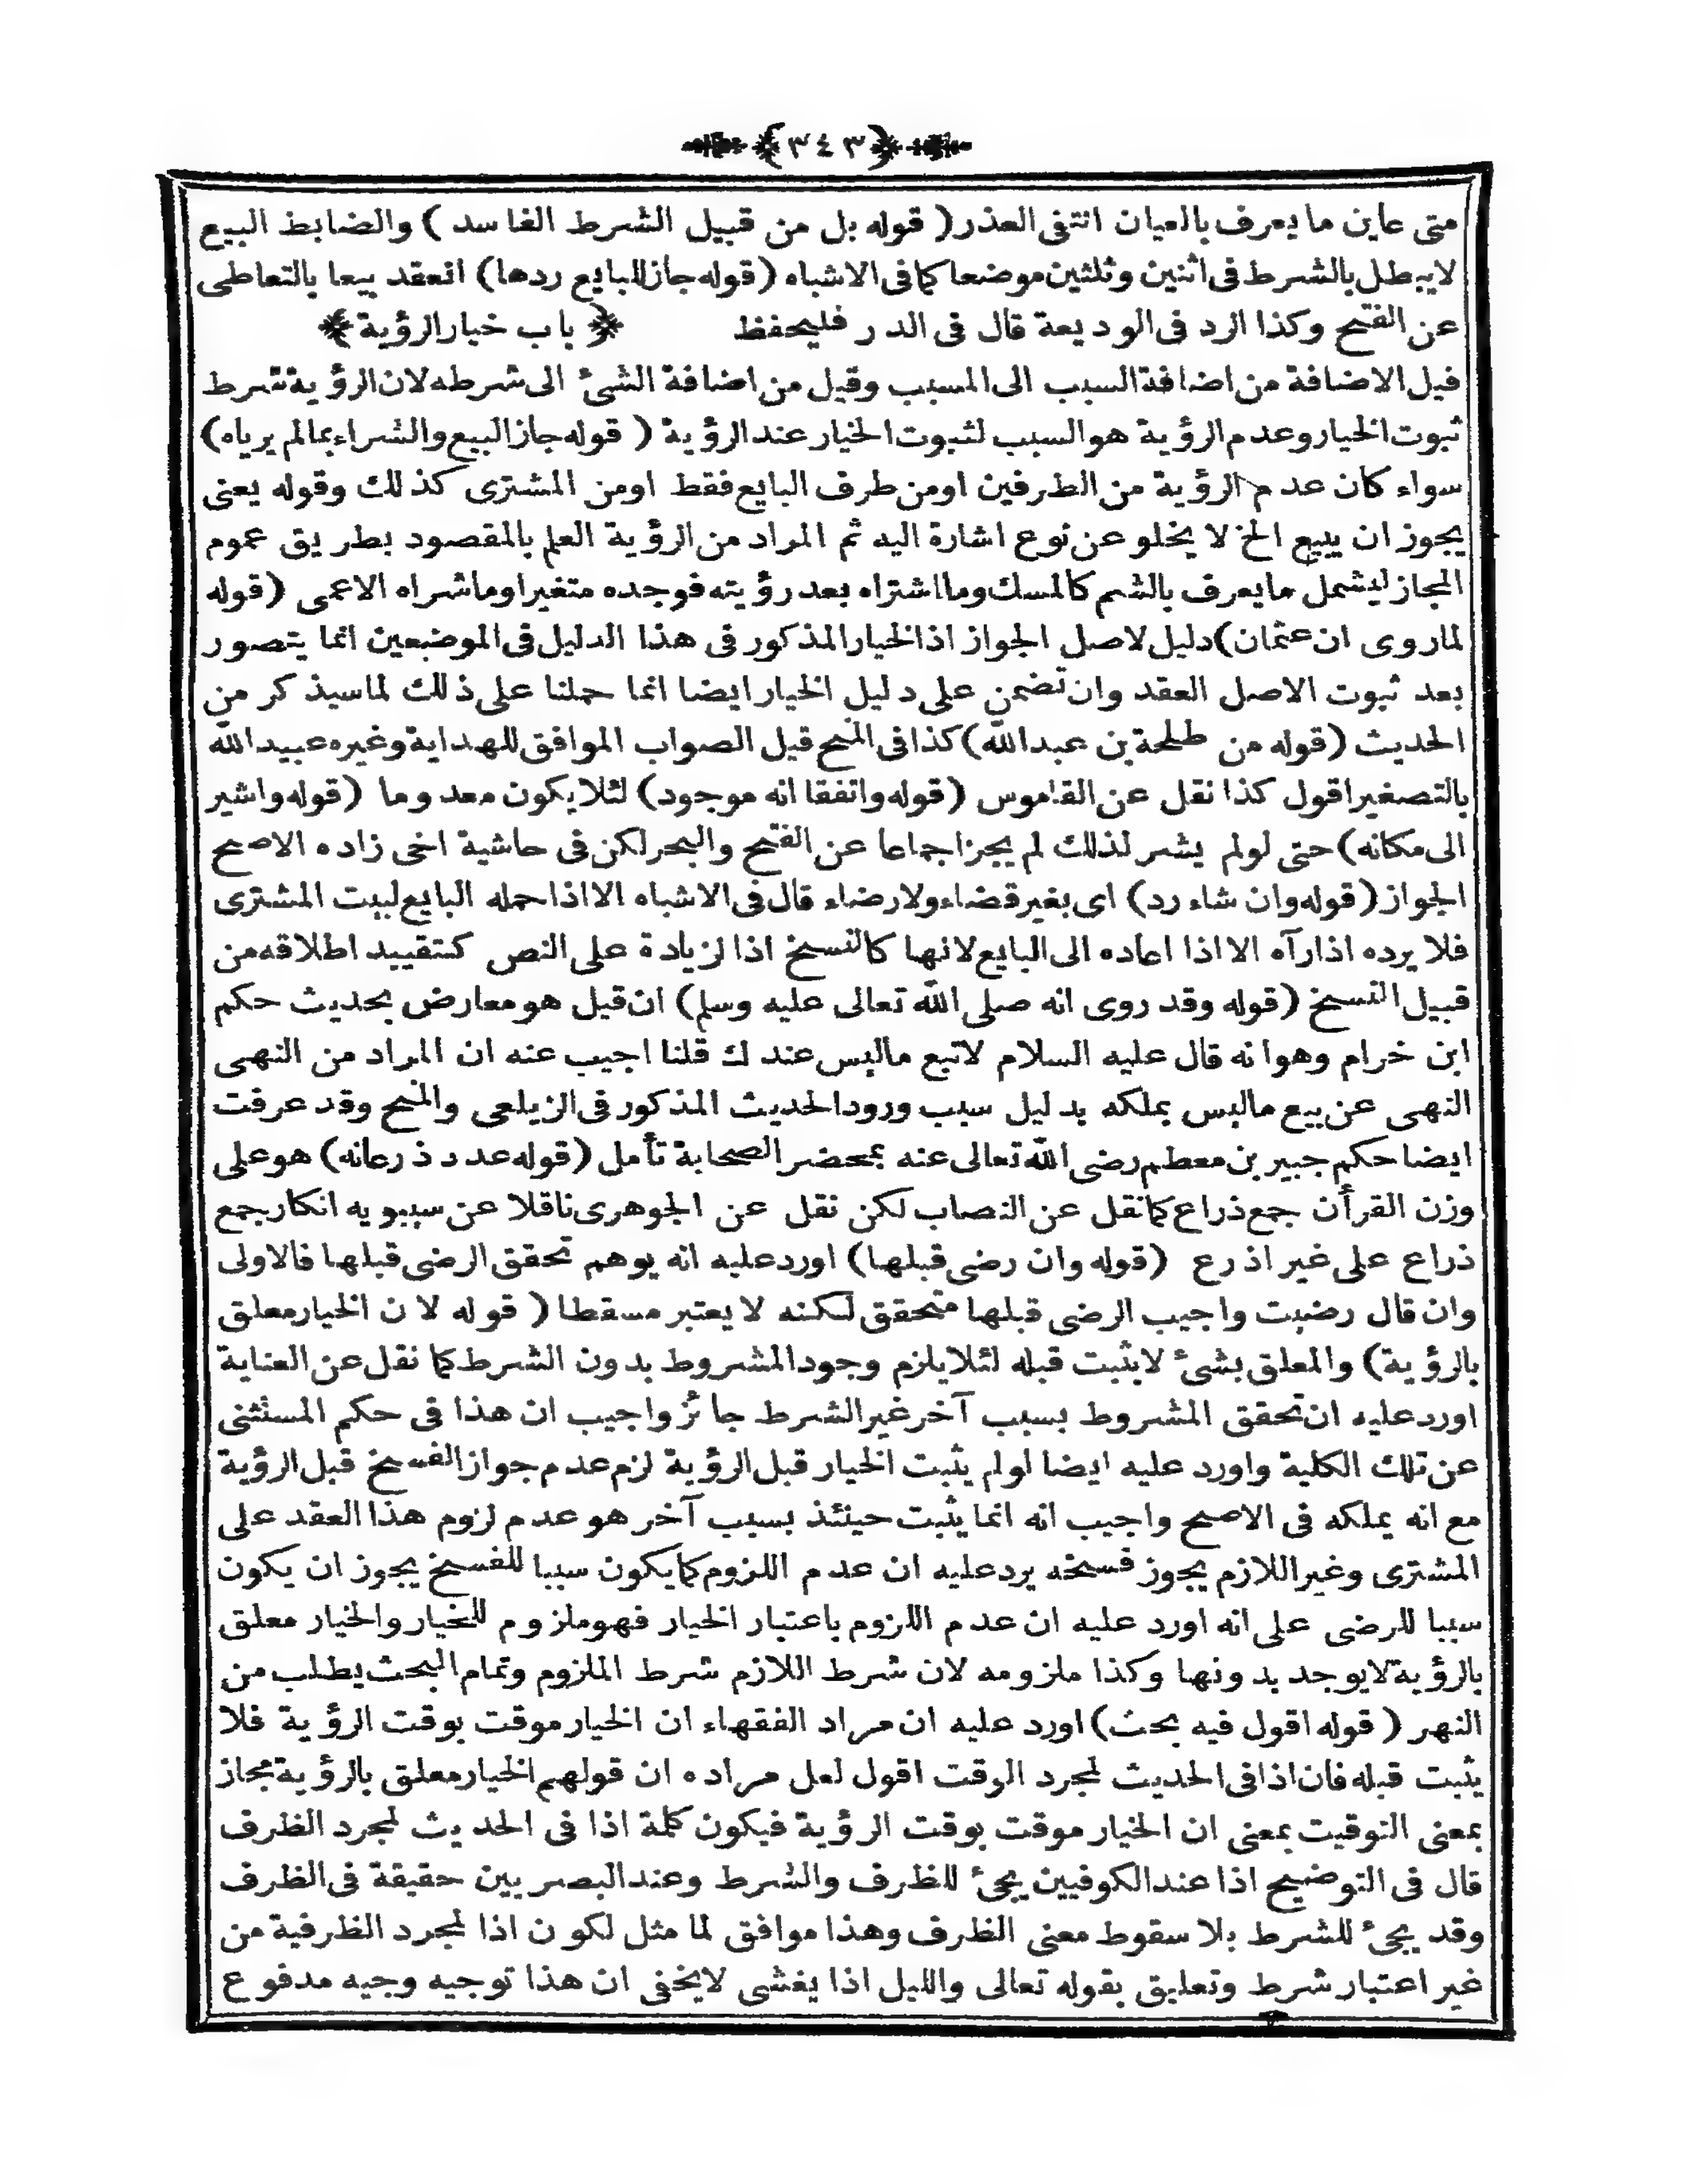 ﴿٣٤٣﴾
متى عاين ما يعرف بالعيان انتفى العذر ( قوله بل من قبيل الشرط الفاسد ) والضابط البيع
لايبطل بالشرط فى اثنين وثلثين موضعا كما فى الاشباه (قوله جاز للبايع ردها) انعقد بيعا بالتعاطى
عن الفتح وكذا الرد فى الوديعة قال فى الدرر فليحفظ ﴿ باب خيار الرؤية ﴾
قيل الاضافة من اضافة السبب الى المسبب وقيل من اضافة الشئ الى شرطه لان الرؤية شرط
ثبوت الخيار وعدم الرؤية هو السبب لثبوت الخيار عند الرؤية ( قوله جاز البيع والشراء بمالم يرياه)
سواء كان عدم الرؤية من الطرفين اومن طرف البايع فقط اومن المشترى كذلك وقوله يعنى
يجوز ان يبيع الخ لا يخلو عن نوع اشارة اليه ثم المراد من الرؤية العلم بالمقصود بطريق عموم
المجاز ليشمل مايعرف بالشم كالمسك وما اشتراه بعد رؤيته فوجده متغيرا وماشراه الاعمى (قوله
لماروى ان عثمان) دليل لاصل الجواز اذ الخيار المذكور فى هذا الدليل فى الموضعين انما يتصور
بعد ثبوت الاصل العقد وان تضمن على دليل الخيار ايضا انما حملنا على ذلك لماسيذكر من
الحديث (قوله من طلحة بن عبدالله) كذا فى المنح قيل الصواب الموافق للهداية وغيره عبيدالله
بالتصغير اقول كذا نقل عن القاموس (قوله واتفقا انه موجود) لئلا يكون معدوما (قوله واشير
الى مكانه) حتى لولم يشر لذلك لم يجز اجماعا عن الفتح والبحر لكن فى حاشية اخى زاده الاصح
الجواز (قوله وان شاء رد) اى بغير قضاء ولا رضاء قال فى الاشباه الا اذا حمله البايع لبيت المشترى
فلا يرده اذا رآه الا اذا اعاده الى البايع لانها كالنسخ اذا لزيادة على النص كتقييد اطلاقه من
قبيل النسخ (قوله وقد روى انه صلى الله تعالى عليه وسلم) ان قيل هو معارض بحديث حكم
ابن خرام وهوانه قال عليه السلام لاتبع ماليس عندك قلنا اجيب عنه ان المراد من النهى
النهى عن بيع ماليس بملكه بدليل سبب ورود الحديث المذكور فى الزيلعى والمنح وقد عرفت
ايضا حكم جبير بن معطم رضى الله تعالى عنه بمحضر الصحابة تأمل (قوله عدد ذرعانه) هو على
وزن القرأن جمع ذراع كما نقل عن النصاب لكن نقل عن الجوهرى ناقلا عن سيبويه انكار جمع
ذراع على غير اذرع (قوله وان رضى قبلها) اورد عليه انه يوهم تحقق الرضى قبلها فالاولى
وان قال رضيت واجيب الرضى قبلها متحقق لكنه لا يعتبر مسقطا ( قوله لان الخيار معلق
بالرؤية) والمعلق بشئ لايثبت قبله لئلا يلزم وجود المشروط بدون الشرط كما نقل عن العناية
اورد عليه ان تحقق المشروط بسبب آخر غير الشرط جائز واجيب ان هذا فى حكم المستثنى
عن تلك الكلية واورد عليه ايضا لولم يثبت الخيار قبل الرؤية لزم عدم جواز الفسخ قبل الرؤية
مع انه يملكه فى الاصح واجيب انه انما يثبت حينئذ بسبب آخر هو عدم لزوم هذا العقد على
المشترى وغير اللازم يجوز فسخه يرد عليه ان عدم اللزوم كما يكون سببا للفسخ يجوز ان يكون
سببا للرضى على انه اورد عليه ان عدم اللزوم باعتبار الخيار فهو ملزوم للخيار والخيار معلق
بالرؤية لايوجد بدونها وكذا ملزومه لان شرط اللازم شرط الملزوم وتمام البحث يطلب من
النهر ( قوله اقول فيه بحث) اورد عليه ان مراد الفقهاء ان الخيار موقت بوقت الرؤية فلا
يثبت قبله فان اذا فى الحديث لمجرد الوقت اقول لعل مراده ان قولهم الخيار معلق بالرؤية مجاز
بمعنى التوقيت بمعنى ان الخيار موقت بوقت الرؤية فيكون كلمة اذا فى الحديث لمجرد الظرف
قال فى التوضيح اذا عند الكوفيين يجئ للظرف والشرط وعند البصريين حقيقة فى الظرف
وقد يجئ للشرط بلا سقوط معنى الظرف وهذا موافق لما مثل لكون اذا لمجرد الظرفية من
غير اعتبار شرط وتعليق بقوله تعالى والليل اذا يغشى لايخفى ان هذا توجيه وجيه مدفوع